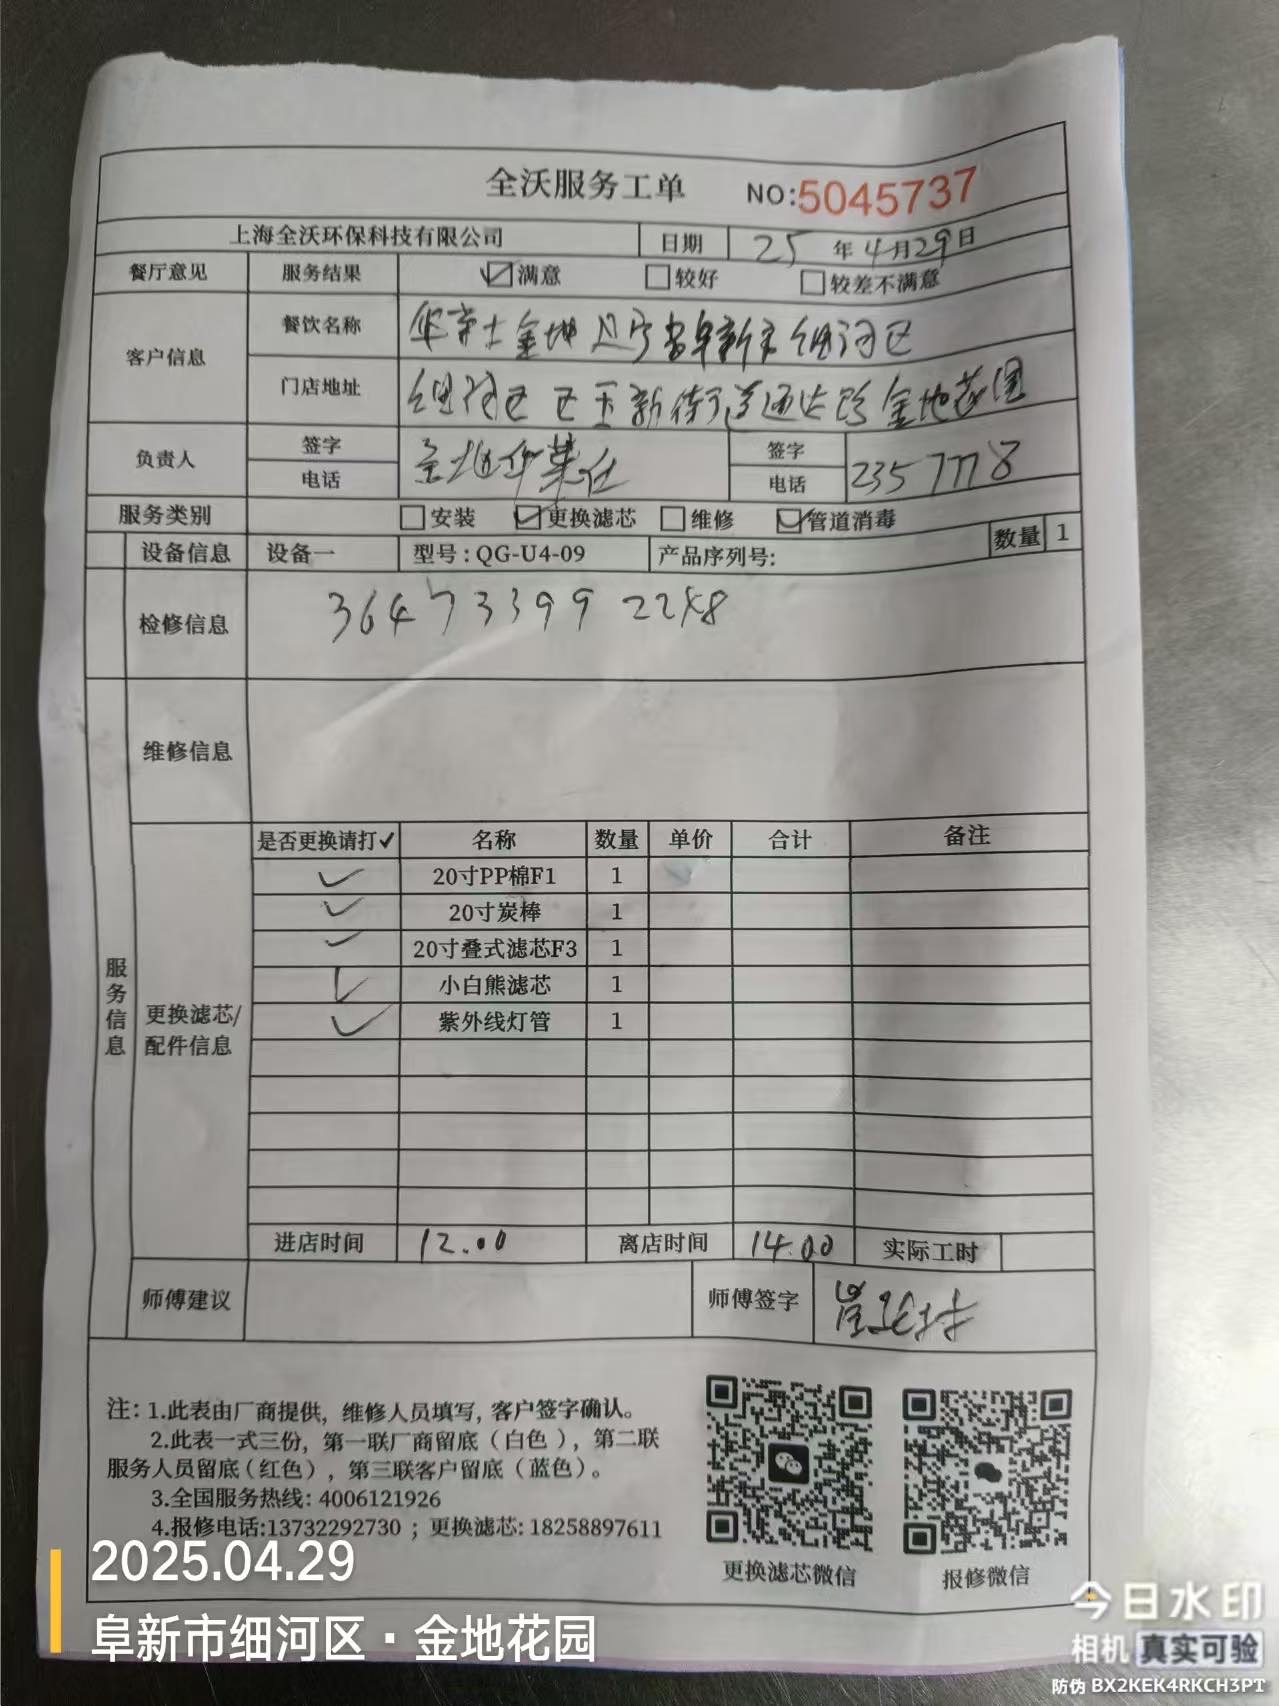 全沃服务工单 NO:5045737
上海全沃环保科技有限公司 日期 25 年 4 月 29 日
餐厅意见 服务结果 ☑满意 □较好 □较差不满意
客户信息 餐饮名称 华莱士金地辽宁省阜新市细河区
门店地址 细河区 区玉新街道通达路金地花园
负责人 签字 金地华莱仕 签字
电话 电话 2357778
服务类别 □安装 ☑更换滤芯 □维修 ☑管道消毒
设备信息 设备一 型号:QG-U4-09 产品序列号: 数量 1
检修信息 364733992258
维修信息
服务信息
更换滤芯/配件信息
是否更换请打✓ 名称 数量 单价 合计 备注
✓ 20寸PP棉F1 1
✓ 20寸炭棒 1
✓ 20寸叠式滤芯F3 1
✓ 小白熊滤芯 1
✓ 紫外线灯管 1
进店时间 12.00 离店时间 14.00 实际工时
师傅建议 师傅签字
注:1.此表由厂商提供,维修人员填写,客户签字确认。
2.此表一式三份,第一联厂商留底(白色),第二联
服务人员留底(红色),第三联客户留底(蓝色)。
3.全国服务热线:4006121926
4.报修电话:13732292730 ;更换滤芯:18258897611
更换滤芯微信 报修微信
2025.04.29
阜新市细河区·金地花园
今日水印
相机 真实可验
防伪 BX2KEK4RKCH3PT